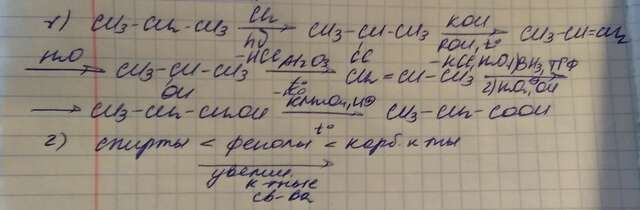 1) CH3-CH2-CH3 Cl2 hν -HCl CH3-CH-CH3 Cl KOH ROH, t° -HCl CH3-CH=CH2
H2O CH3-CH-CH3 OH Al2O3 t° -H2O CH2=CH-CH3 1) BH3, ТГФ 2) H2O2, OH
CH3-CH2-CH2OH KMnO4, H⊕ t° CH3-CH2-COOH
2) спирты < фенолы < карб. к-ты
увелич.
к-тные
св-ва